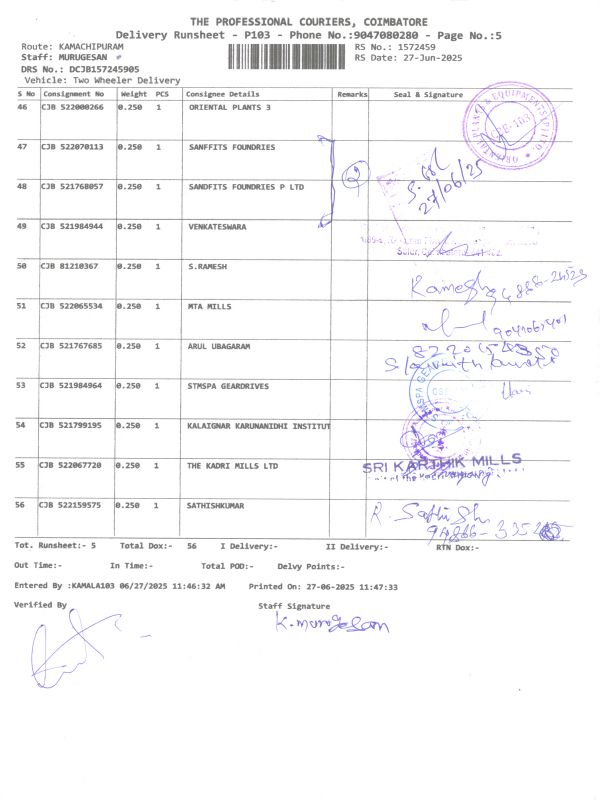 THE PROFESSIONAL COURIERS, COIMBATORE
Delivery Runsheet - P103 - Phone No.:9047080280 - Page No.:5
Route: KAMACHIPURAM RS No.: 1572459
Staff: MURUGESAN RS Date: 27-Jun-2025
DRS No.: DCJB157245905
Vehicle: Two Wheeler Delivery
S No Consignment No Weight PCS Consignee Details Remarks Seal & Signature
46 CJB 522000266 0.250 1 ORIENTAL PLANTS 3
47 CJB 522070113 0.250 1 SANFFITS FOUNDRIES
2
27/06/25
48 CJB 521768057 0.250 1 SANDFITS FOUNDRIES P LTD
49 CJB 521984944 0.250 1 VENKATESWARA
50 CJB 81210367 0.250 1 S.RAMESH
Ramesh
51 CJB 522065534 0.250 1 MTA MILLS
52 CJB 521767685 0.250 1 ARUL UBAGARAM
53 CJB 521984964 0.250 1 STMSPA GEARDRIVES
54 CJB 521799195 0.250 1 KALAIGNAR KARUNANIDHI INSTITUT
55 CJB 522067720 0.250 1 THE KADRI MILLS LTD
SRI KARTHIK MILLS
56 CJB 522159575 0.250 1 SATHISHKUMAR
Tot. Runsheet:- 5 Total Dox:- 56 I Delivery:- II Delivery:- RTN Dox:-
Out Time:- In Time:- Total POD:- Delvy Points:-
Entered By :KAMALA103 06/27/2025 11:46:32 AM Printed On: 27-06-2025 11:47:33
Verified By Staff Signature
K. Murugesan